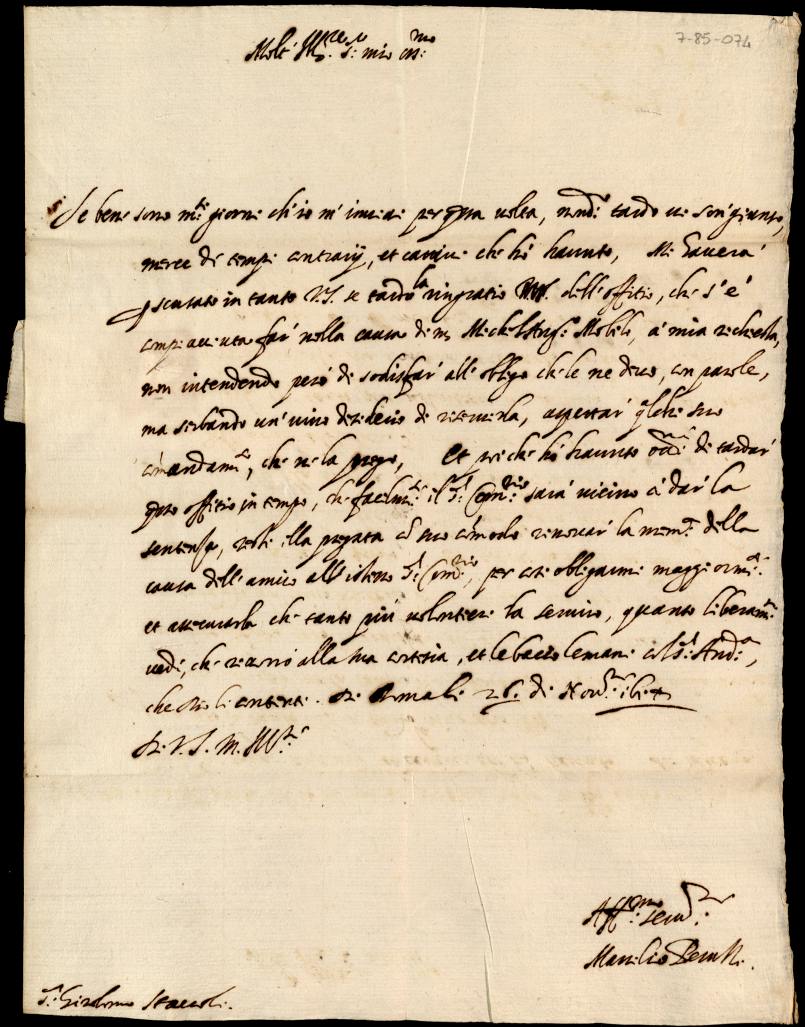 7-85-074
Molt' Ill.re S.r mio oss.mo
Se bene sono m.ti giorni ch'io m'inviai per q.sta volta, nondi. tardo vi son giunto,
mercè di tempi contrarij, et cattivi che hò havuto, Mi haverà
scusato in tanto V.S. se tardo la ringratio dell'offitio, che s'è
far' nella causa di m. Michel'Ang.o Mobili, a' mia richiesta,
non intendendo però di sodisfar' all'obligo che le ne devo, con parole,
ma serbando un' vivo desiderio di servirla, aspettar' q.lche suo
comandam.to, che ne la prego, Et perche hò havuto occ.ne di tardar'
q.sto offitio in tempo, che facilm.te il S.r Com.rio sarà vicino à dar la
sentenza, resti ella pregata cò suo còmodo renovar' la mem.a della
causa dell'amico all'istesso S.r Com.rio, per così obligarmi maggiorm.te
et assicurarla che tanto più volontieri la servirò, quanto liberam.te
vedi, che ricorro alla sua cortesia, et le bacio le mani col S.r And.a,
che Dio li contenti. Di 26. di Nov.re
Di V.S. M. Ill.re
Aff.mo ser.re
Manilio
S.r Girolamo Staccoli.